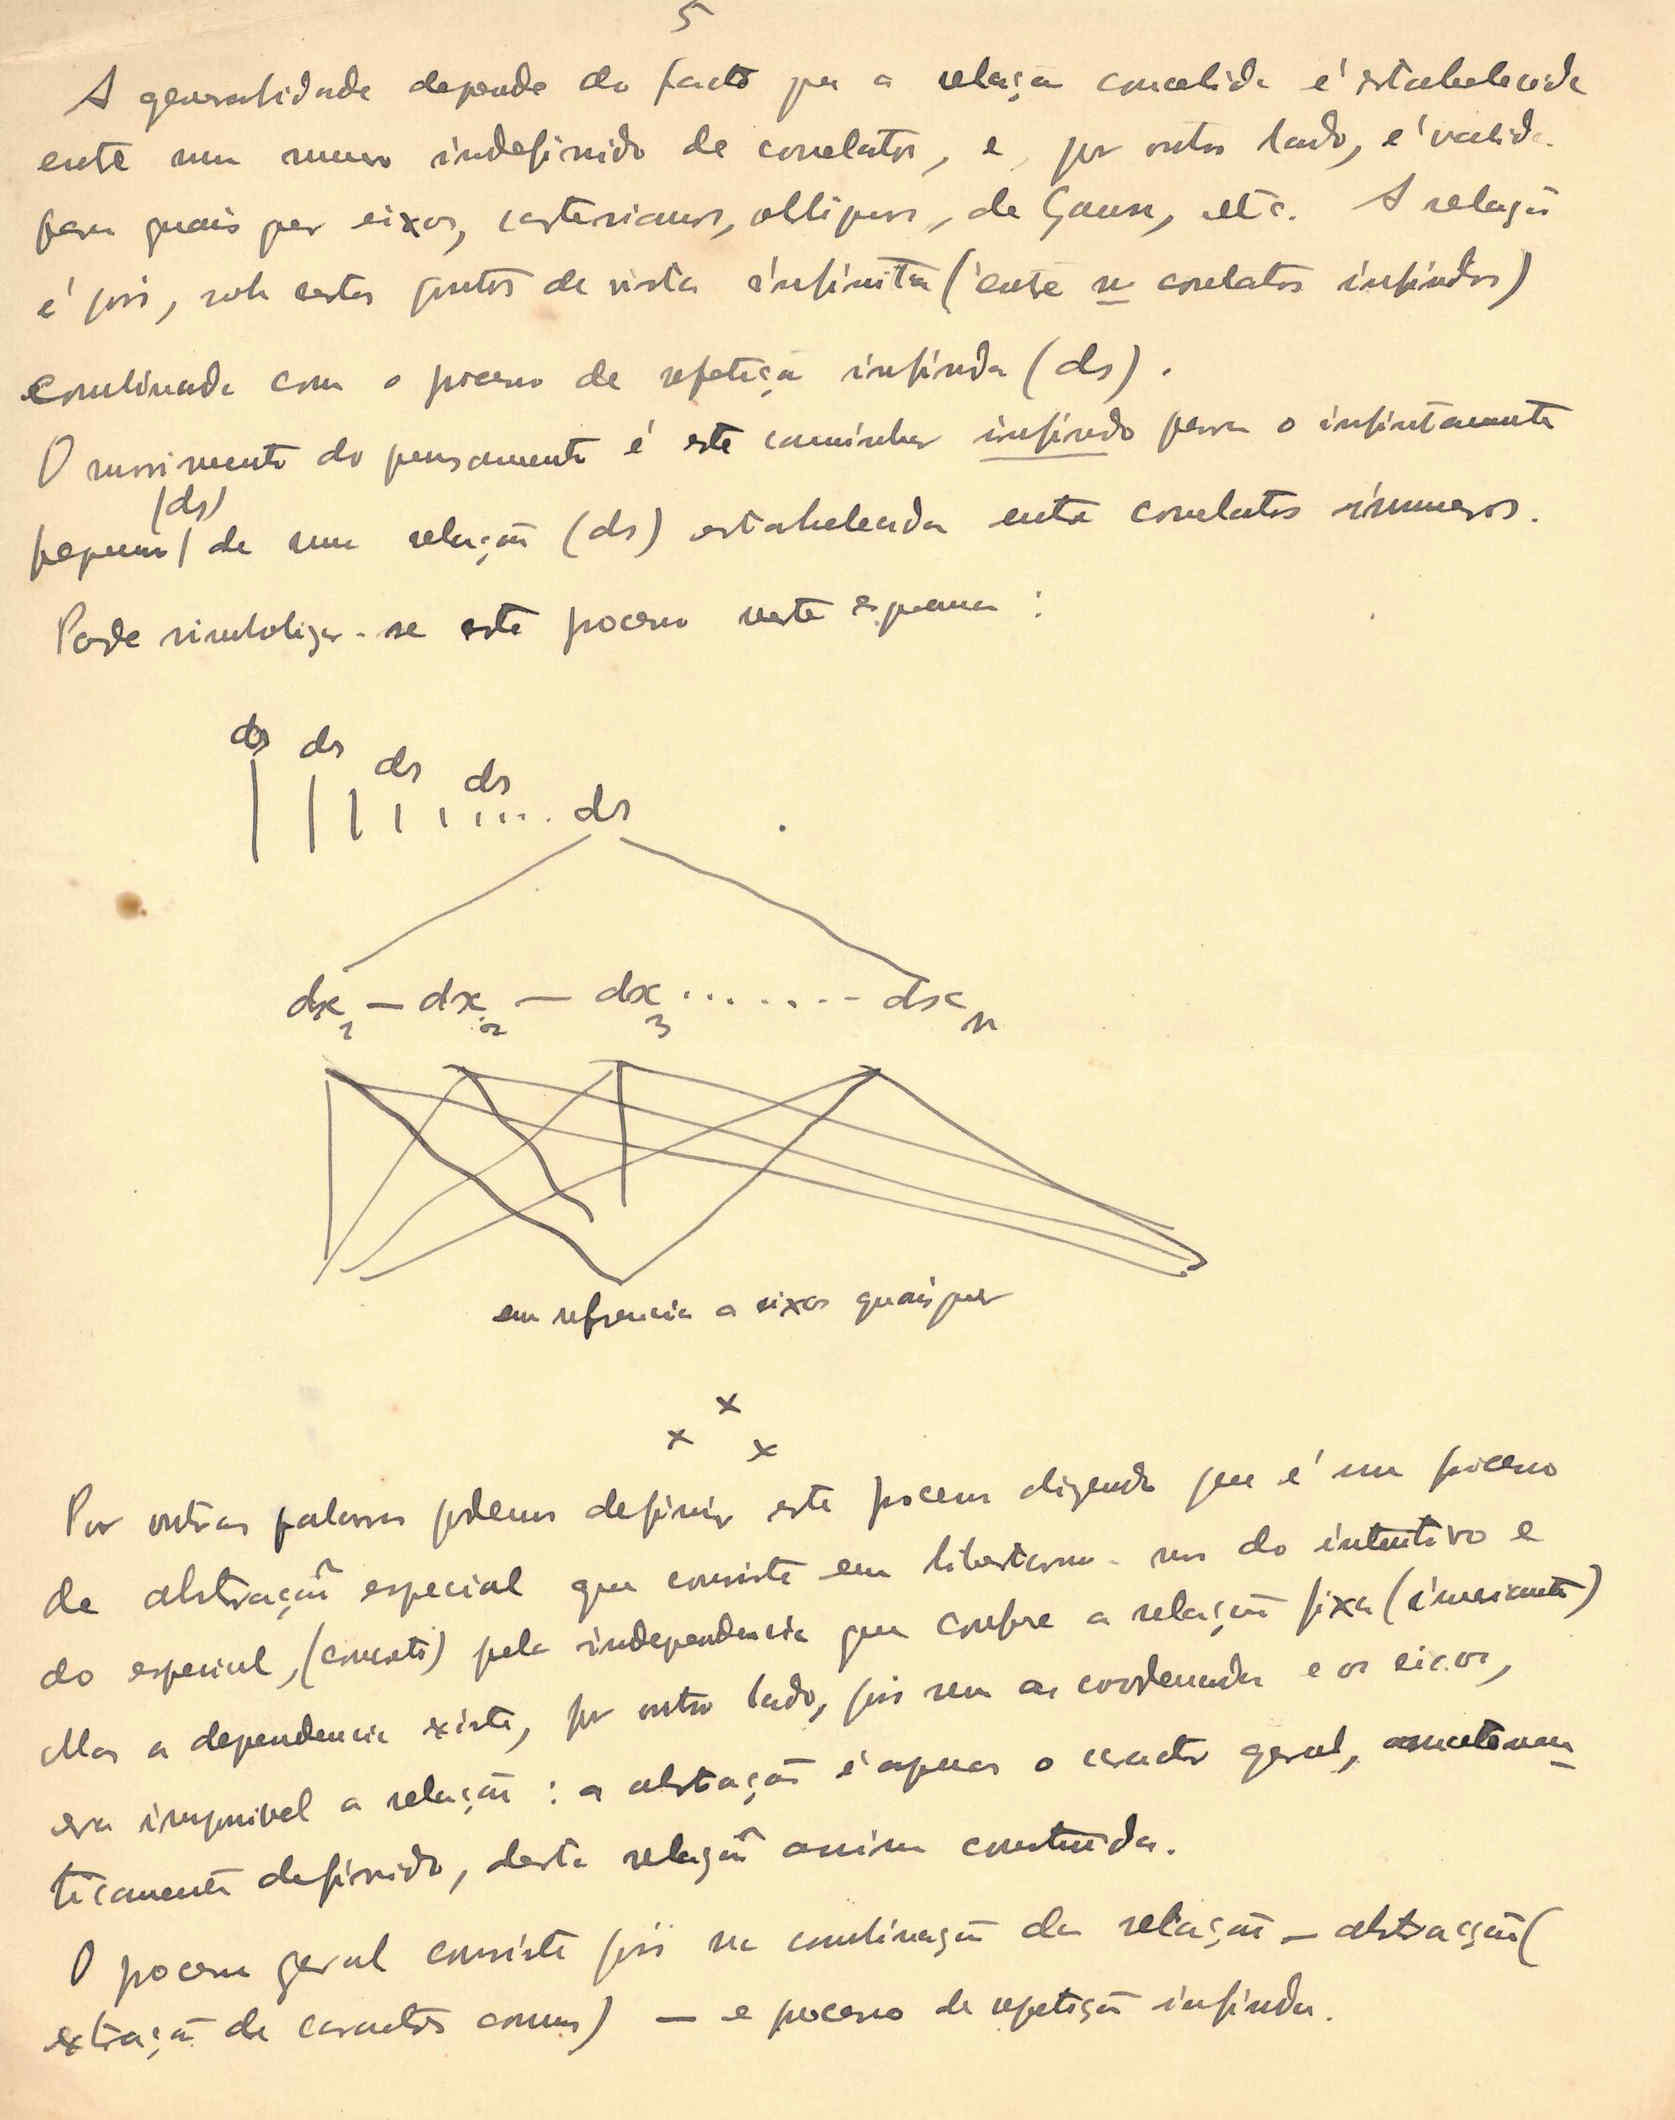 5
A generalidade depende do facto que a relação concebida é estabelecida
entre um numero indefinido de correlatos, e, por outro lado, é valida
para quaisquer eixos, cartesianos, obliquos, de Gauss, etc. A relação
é pois, sob certos pontos de vista infinita (entre n correlatos infindos)
combinada com o processo de repetição infinda (ds).
O movimento do pensamento é este caminhar infindo para o infinitamente
(ds)
pequeno / de uma relação (ds) estabelecida entre correlatos inumeros.
Pode simbolizar-se este processo neste esquema :
ds ds ds ds .... ds
dx1 — dx2 — dx3 ........ dxn
em referencia a eixos quaisquer
x x x
Por outras palavras podemos definir este processo dizendo que é um processo
de abstração especial que consiste em libertarmo-nos do intuitivo e
do especial, (concreto) pela independencia que confere a relação fixa (invariante)
Mas a dependencia existe, por outro lado, pois sem as coordenadas e os eixos,
era impossivel a relação : a abstração é apenas o caracter geral,
ticamente definido, desta relação assim construida.
O processo geral consiste pois na combinação da relação — abstracção (
extração de caracteres comuns) — e processo de repetição infinda.